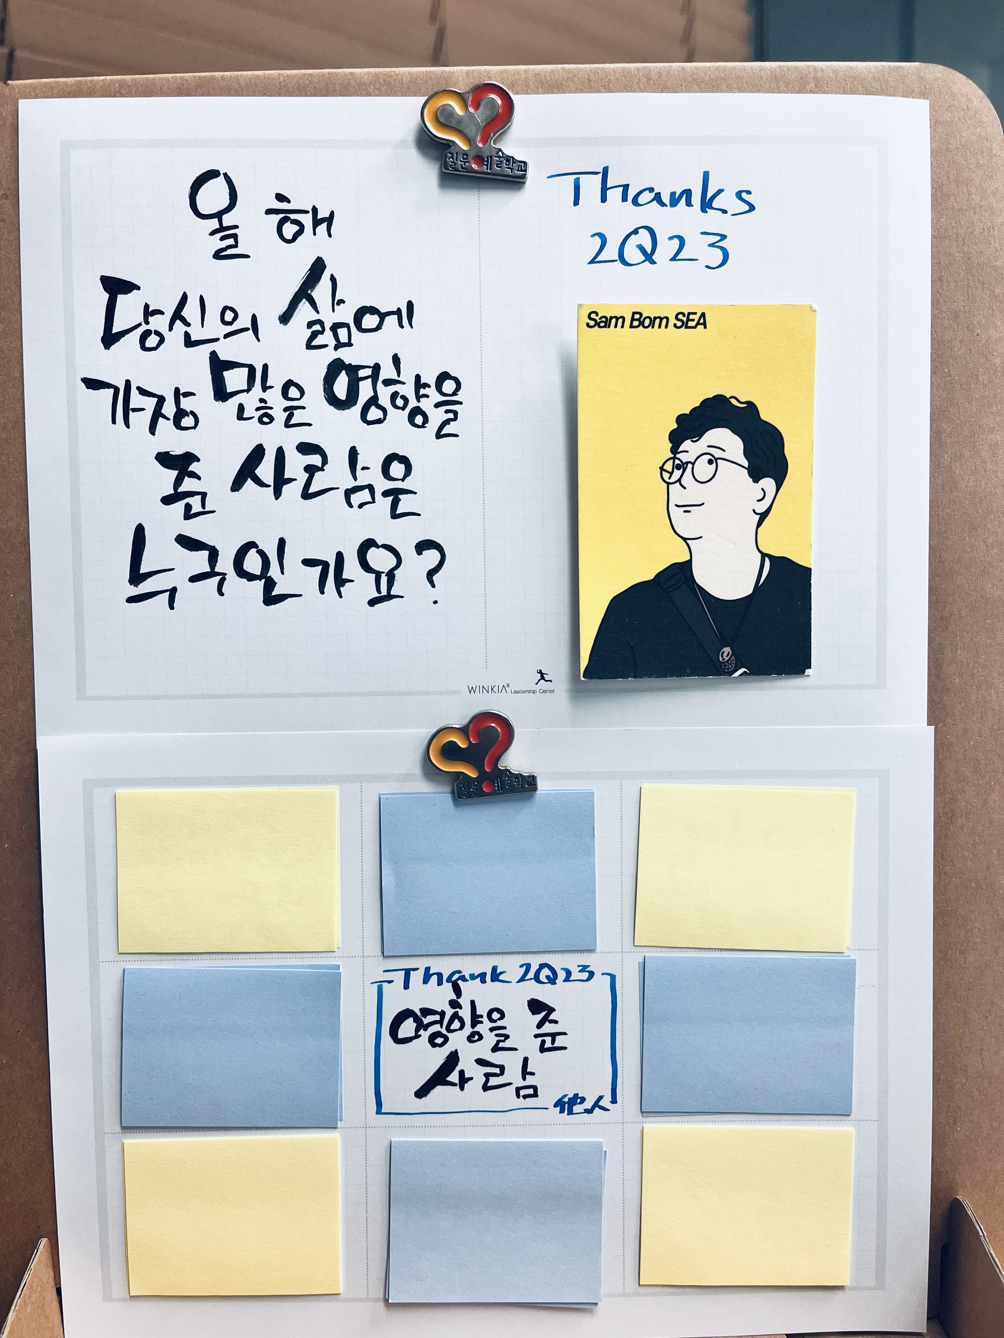 질문예술학교
올 해
당신의 삶에
가장 많은 영향을
준 사람은
누구인가요?
Thanks
2Q23
Sam Bom SEA
WINKIA Leadership Center
질문예술학교
Thank 2Q23
영향을 준
사람
他人